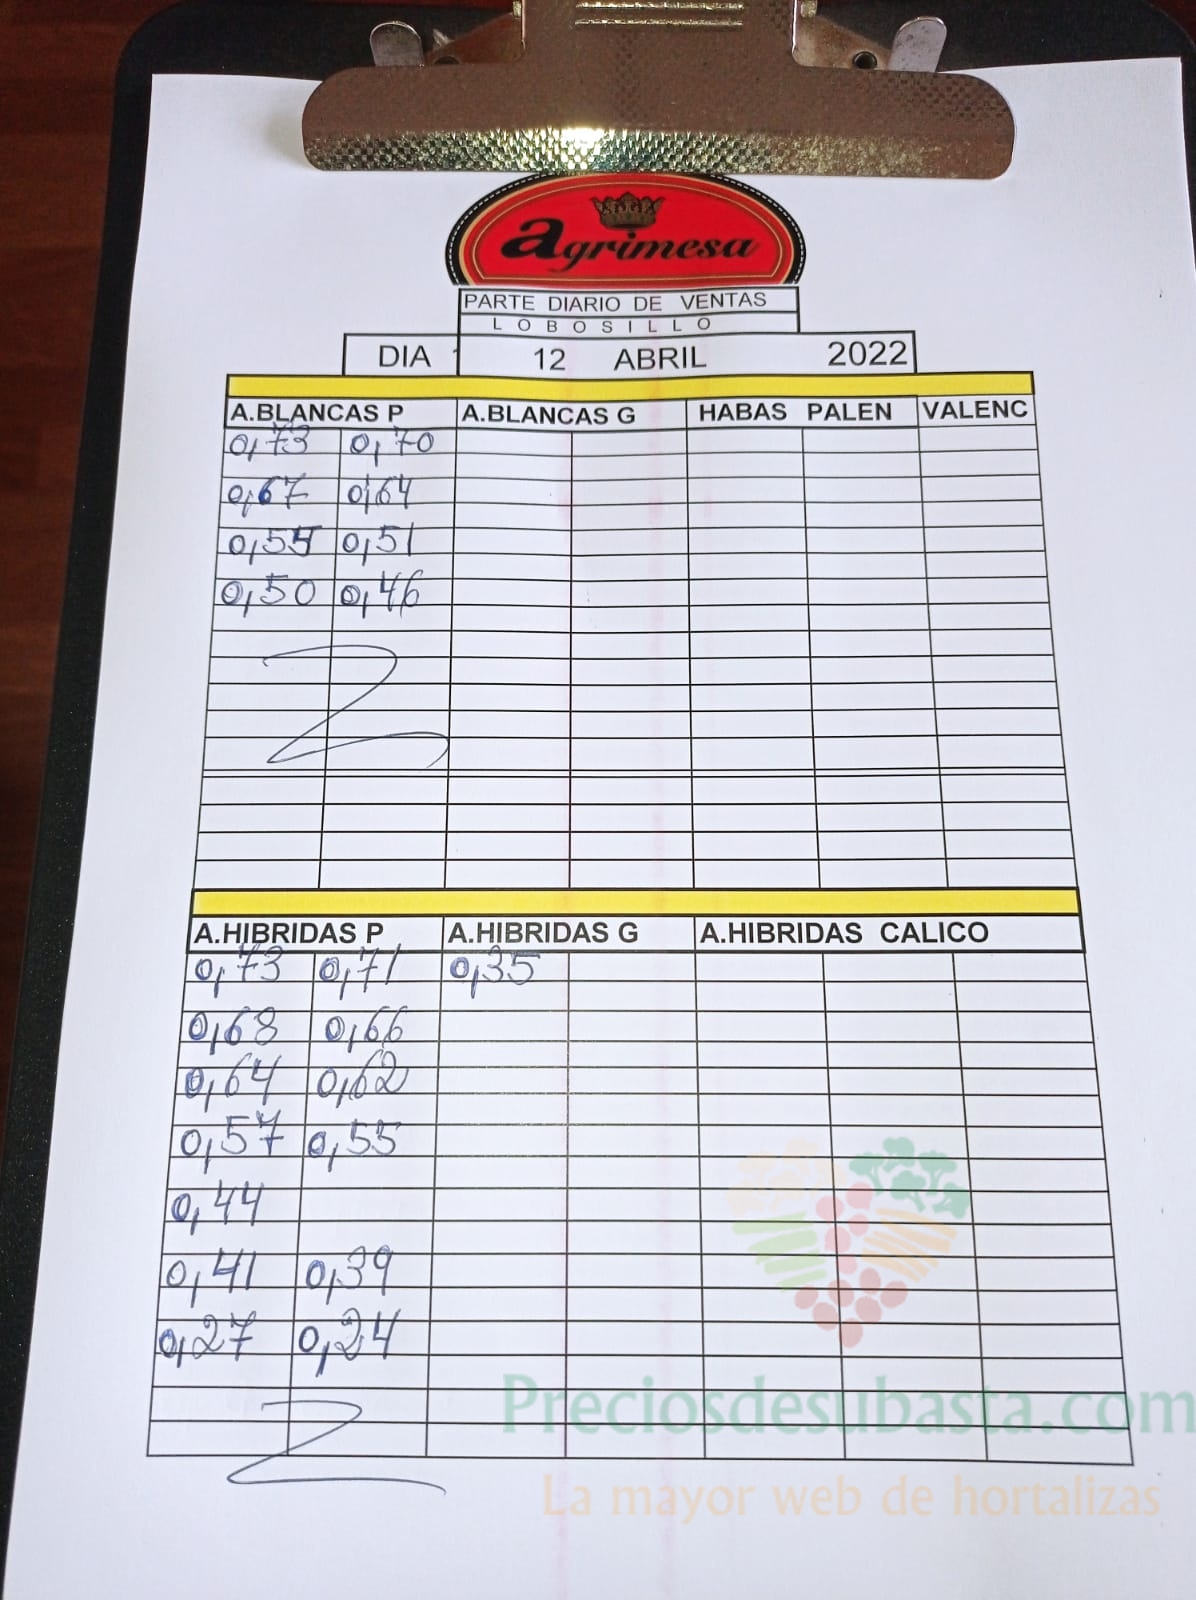 agrimesa
PARTE DIARIO DE VENTAS
LOBOSILLO
DIA 12 ABRIL 2022
A.BLANCAS P A.BLANCAS G HABAS PALEN VALENC
0,73 0,70
0,67 0,64
0,54 0,51
0,50 0,46
A.HIBRIDAS P A.HIBRIDAS G A.HIBRIDAS CALICO
0,73 0,71 0,35
0,68 0,66
0,64 0,62
0,57 0,55
0,44
0,41 0,39
0,27 0,24
Preciosdesubasta.com
La mayor web de hortalizas